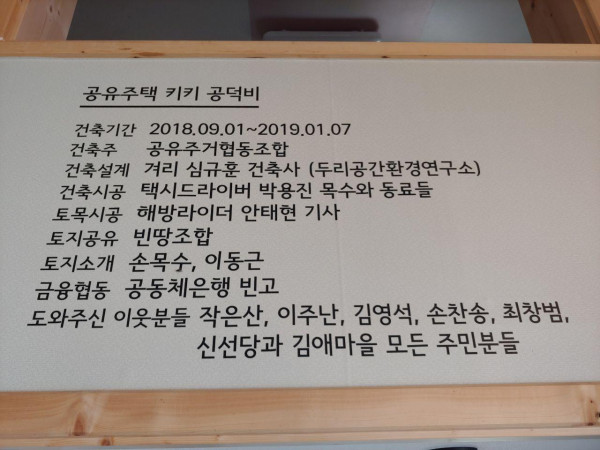 공유주택 키키 공덕비
건축기간 2018.09.01~2019.01.07
건축주 공유주거협동조합
건축설계 겨리 심규훈 건축사 (두리공간환경연구소)
건축시공 택시드라이버 박용진 목수와 동료들
토목시공 해방라이더 안태현 기사
토지공유 빈땅조합
토지소개 손목수, 이동근
금융협동 공동체은행 빈고
도와주신 이웃분들 작은산, 이주난, 김영석, 손찬송, 최창범,
신선당과 김애마을 모든 주민분들